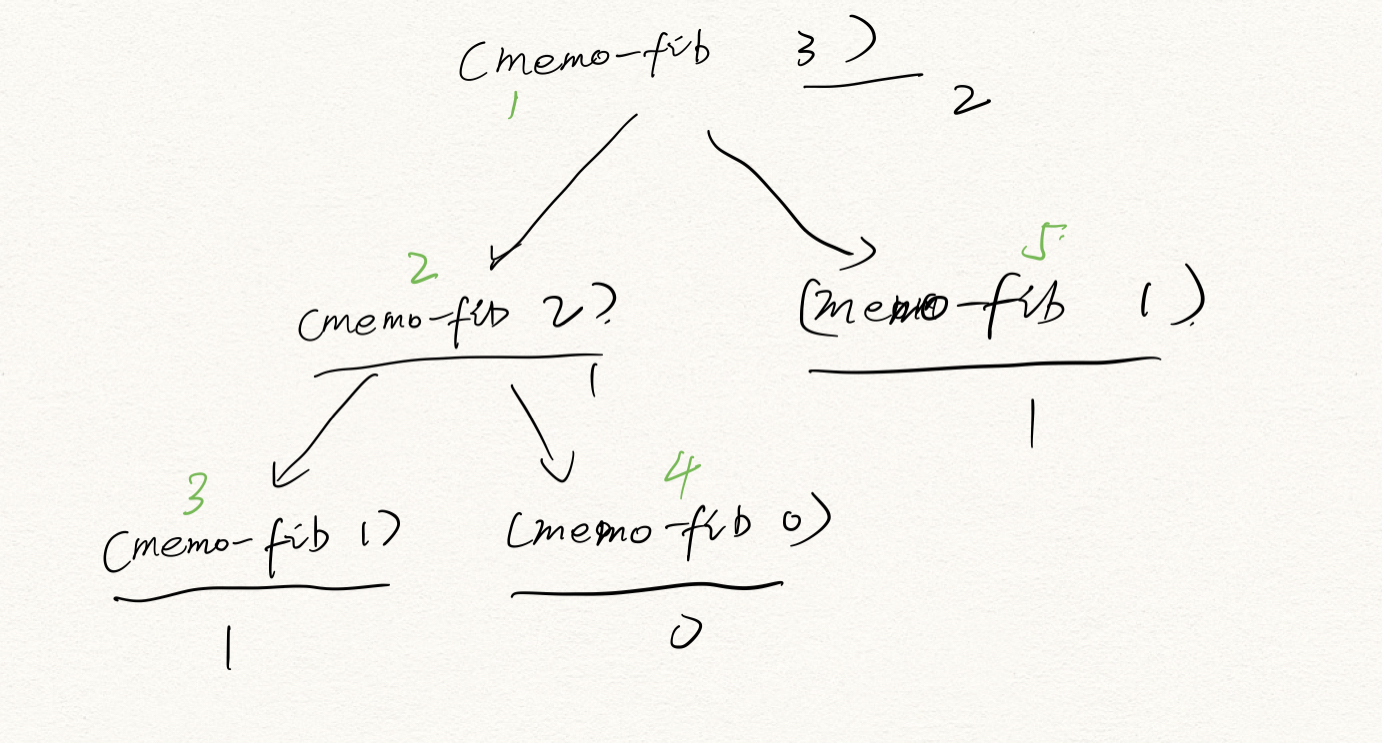 (memo-fib 3)
1
2
2
5
(memo-fib 2)
(memo-fib 1)
1
1
3
4
(memo-fib 1)
(memo-fib 0)
1
0